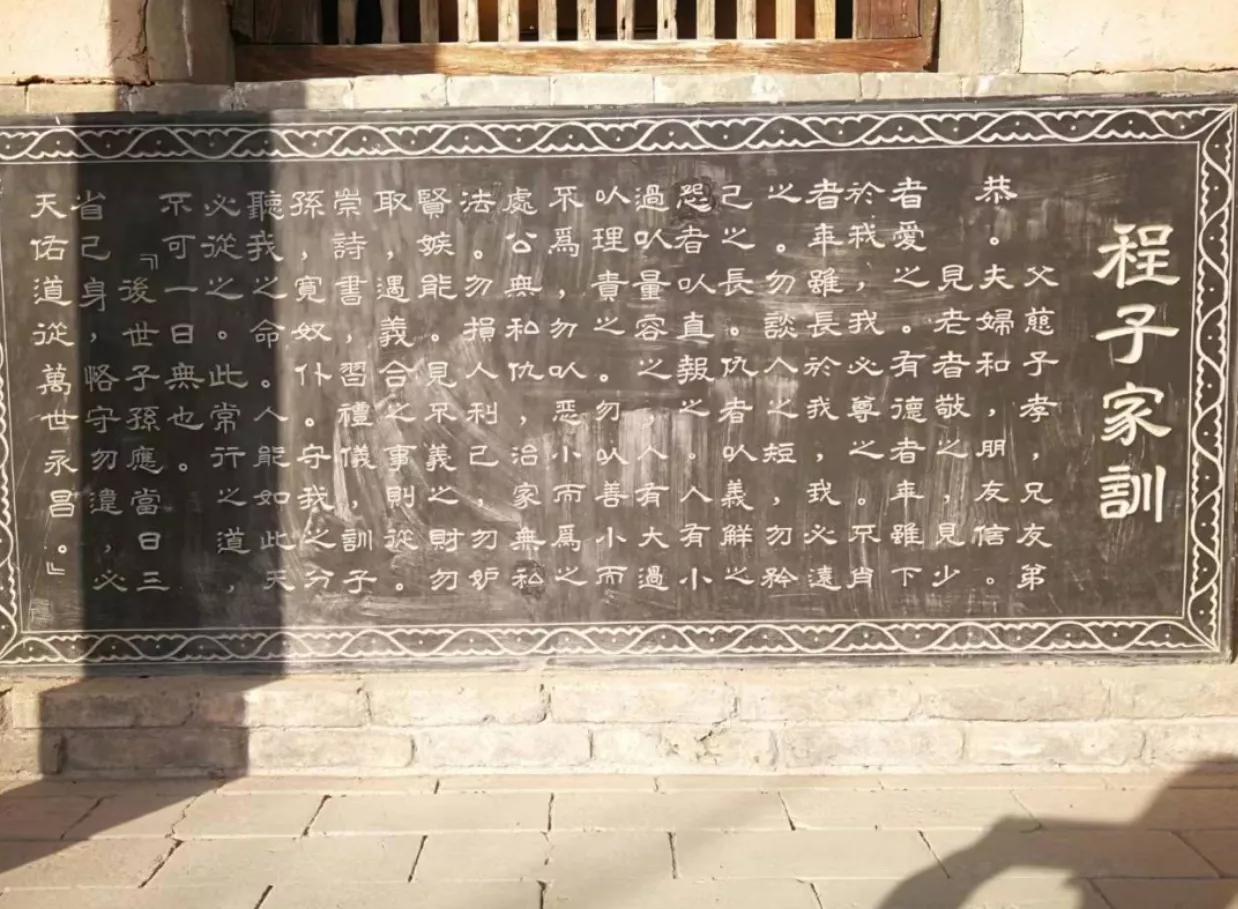 程子家訓
父慈子孝，兄友第
恭。夫婦和，朋友信。
見老者敬之，見少
者愛之。有德者年雖下
於我，我必尊之。不肖
者年雖長於我，我必遠
之。勿談人之短，勿矜
己之長。仇者以義鮮之
怨者以直報之。人有小
過以量容之，人有大過
以理責之。勿以善小而
不爲，勿以惡小而爲之
處公無私仇，治家無私
法。勿損人利己，勿妒
賢嫉能。見不義之財勿
取，遇義合之事則從。
崇詩書，習禮儀，訓子
孫，寬奴仆。守我之分
聽我之命。人能如此天
必從之。此常行之道，
不可一日無也。
『後世子孫應當日三
省己身，恪守勿違，必
天佑道從萬世永昌。』